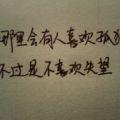 哪里会有人喜欢孤
不过是不喜欢失望